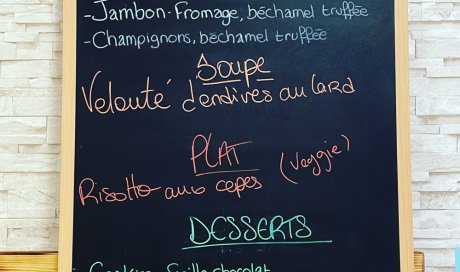 - Jambon-Fromage, béchamel truffée
- Champignons, béchamel truffée
Soupe
Velouté d'endives au lard
PLAT
Risotto aux cepes (Veggie)
DESSERTS
chocolat